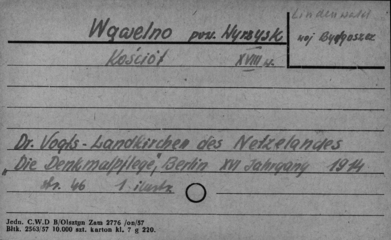 Wąwelno pow. Wyrzysk
Lindenwald
woj Bydgoszcz
Kościół XVIII w.
Dr. Vogts - Landkirchen des Netzelandes
„Die Denkmalpflege", Berlin XVI Jahrgang 1914
str. 46 1 ilustr.
Jedn. C.W.D B/Olsztyn Zam 2776 /on/57
Bltk. 2563/57 10.000 szt. karton kl. 7 g 220.